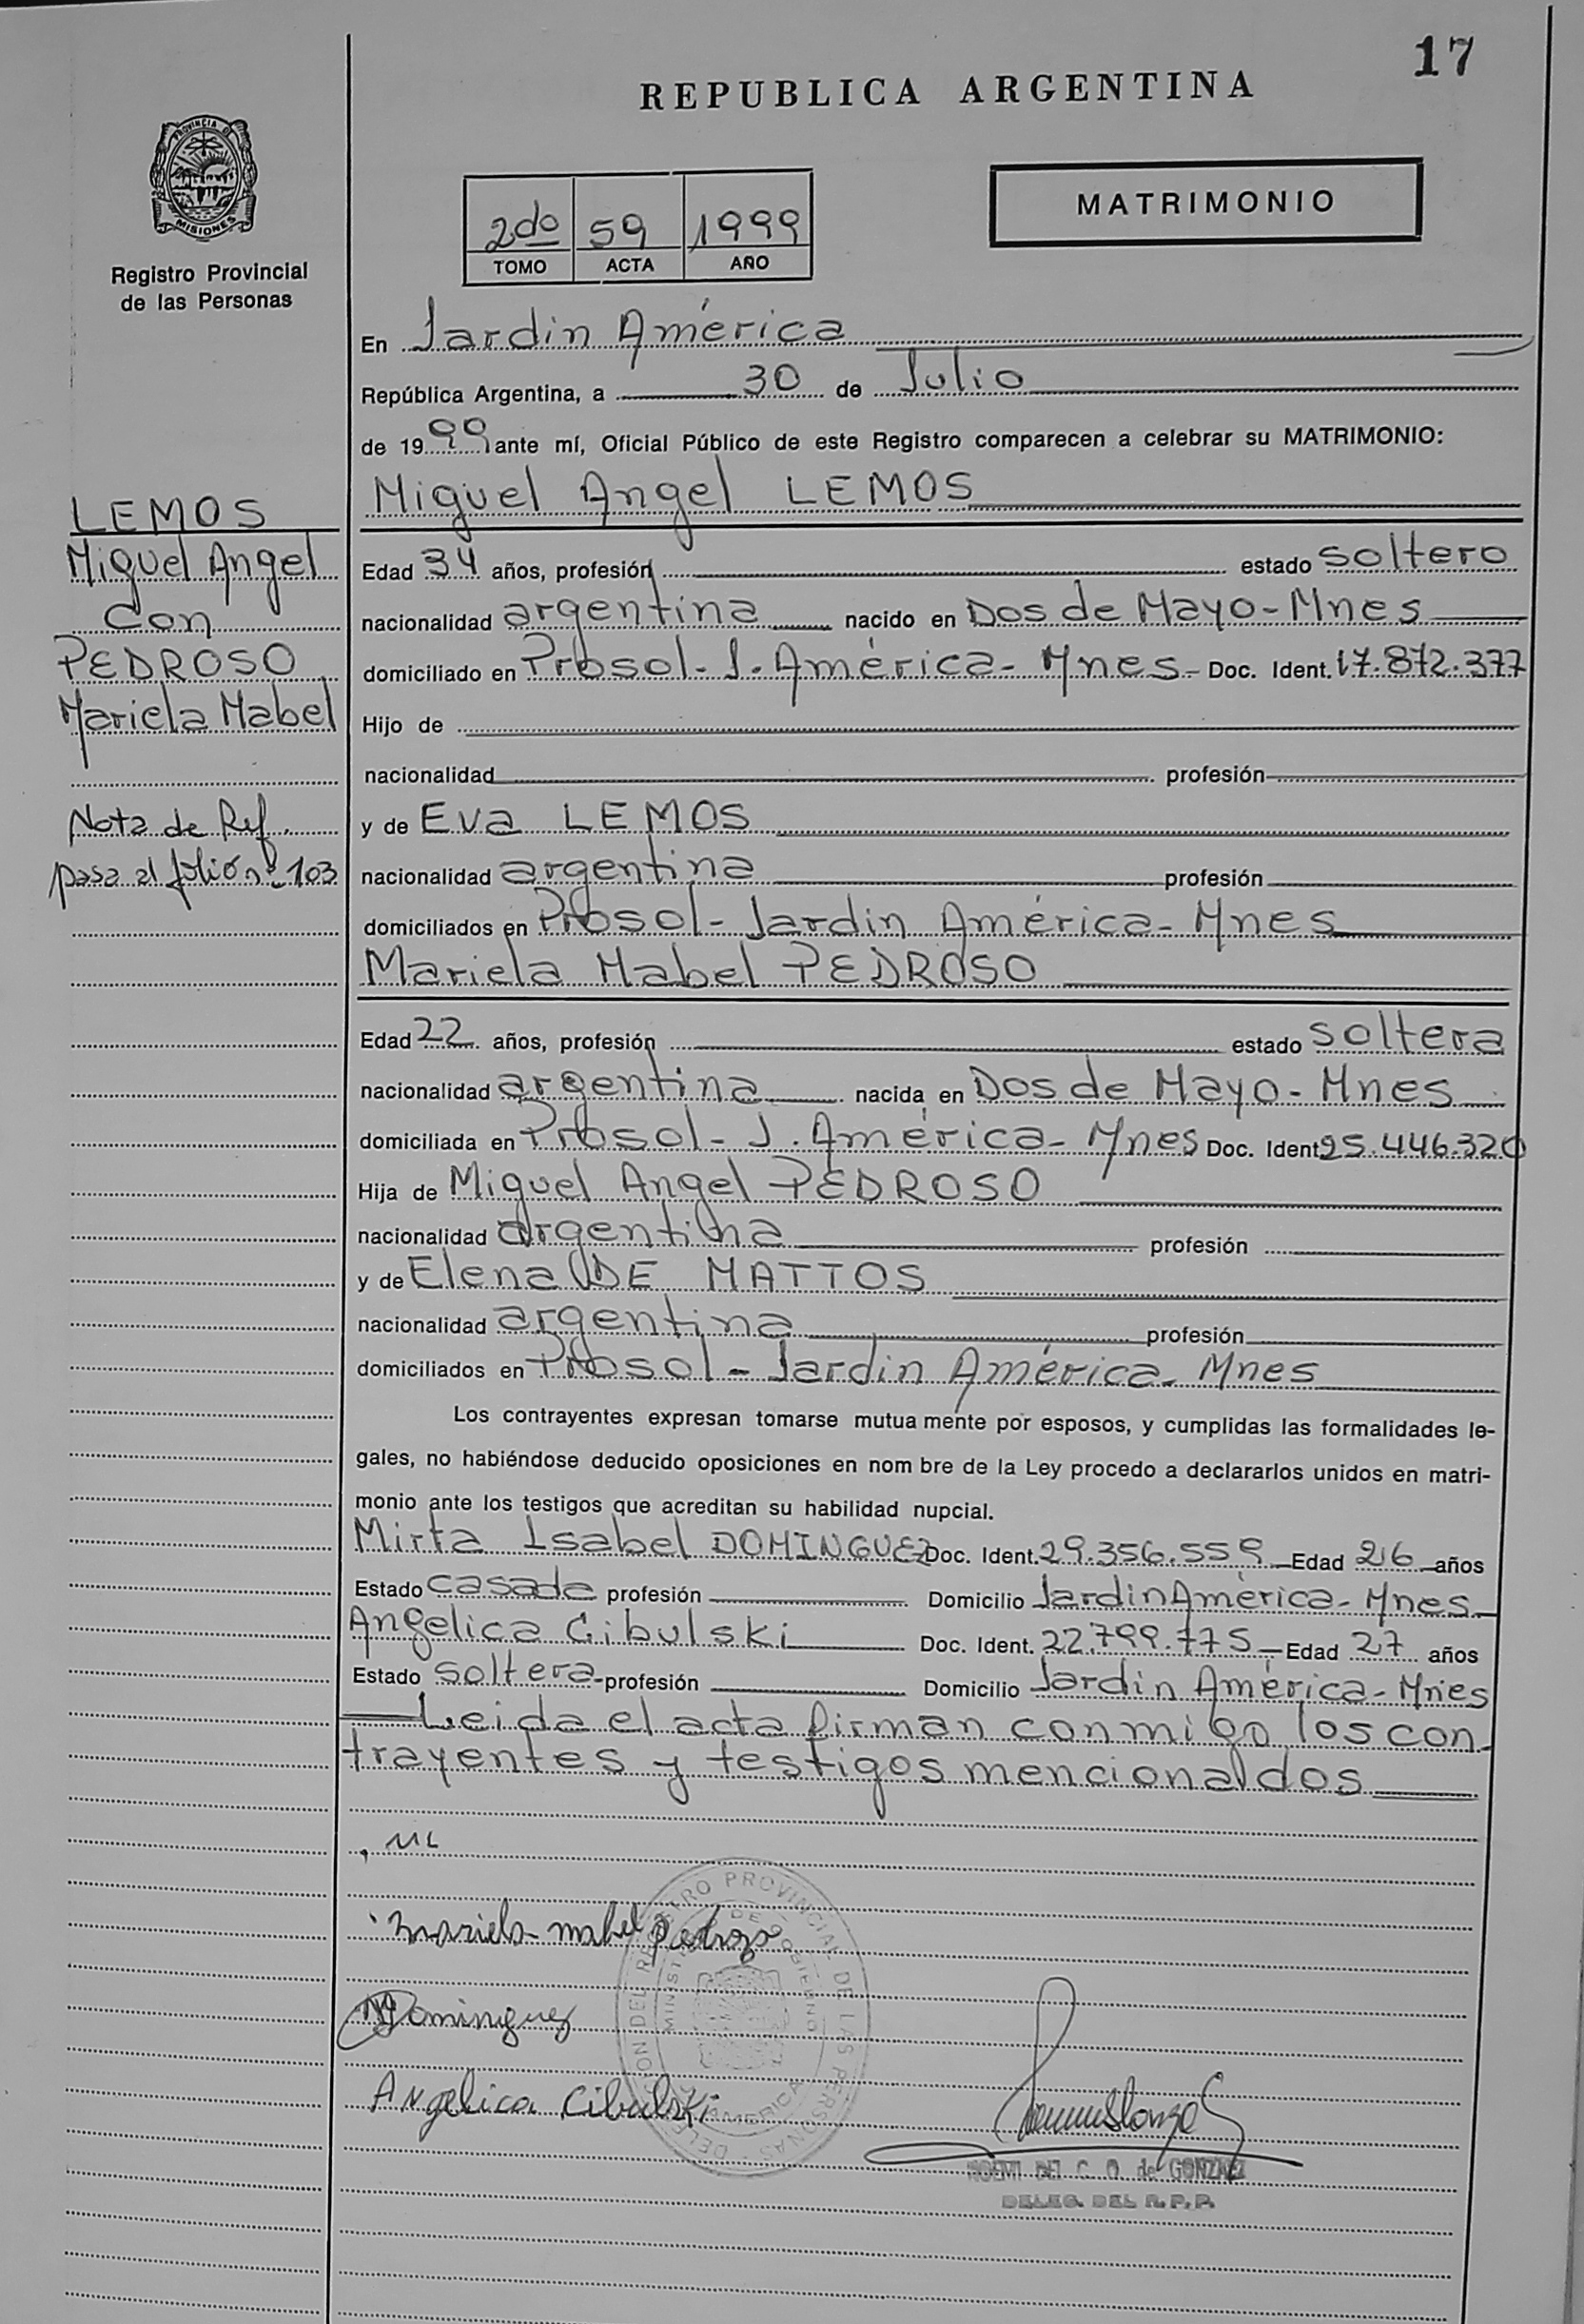 17
REPUBLICA ARGENTINA
PROVINCIA DE
MISIONES
Registro Provincial
de las Personas
MATRIMONIO
2do 59 1999
TOMO ACTA AÑO
En Jardin América
República Argentina, a 30 de Julio
de 1999 ante mí, Oficial Público de este Registro comparecen a celebrar su MATRIMONIO:
Miguel Angel LEMOS
LEMOS
Miguel Angel
Con
PEDROSO
Mariela Mabel
Nota de Ref.
pasa al folio nº 103
Edad 34 años, profesión estado soltero
nacionalidad argentina nacido en Dos de Mayo - Mnes
domiciliado en Prosol - J. América - Mnes - Doc. Ident. 17.872.377
Hijo de
nacionalidad profesión
y de Eva LEMOS
nacionalidad argentina profesión
domiciliados en Prosol - Jardin América - Mnes
Mariela Mabel PEDROSO
Edad 22 años, profesión estado soltera
nacionalidad argentina nacida en Dos de Mayo - Mnes
domiciliada en Prosol - J. América - Mnes Doc. Ident 25.446.320
Hija de Miguel Angel PEDROSO
nacionalidad argentina profesión
y de Elena DE MATTOS
nacionalidad argentina profesión
domiciliados en Prosol - Jardin América - Mnes
Los contrayentes expresan tomarse mutua mente por esposos, y cumplidas las formalidades le-
gales, no habiéndose deducido oposiciones en nom bre de la Ley procedo a declararlos unidos en matri-
monio ante los testigos que acreditan su habilidad nupcial.
Mirta Isabel DOMINGUEZ Doc. Ident. 29.356.559 Edad 26 años
Estado casada profesión Domicilio Jardin América - Mnes
Angelica Cibulski Doc. Ident. 22.799.775 Edad 27 años
Estado soltera profesión Domicilio Jardin América - Mnes
Leida el acta firman conmigo los con
trayentes y testigos mencionados
ML
Mariela mabel Pedrozo
Dominguez
Angelica Cibulski
DELEGACION DEL REGISTRO PROVINCIAL DE LAS PERSONAS
MINISTERIO DE GOBIERNO
AMERICA
NOEMI DEL C. O. de GONZALEZ
DELEG. DEL R.P.P.